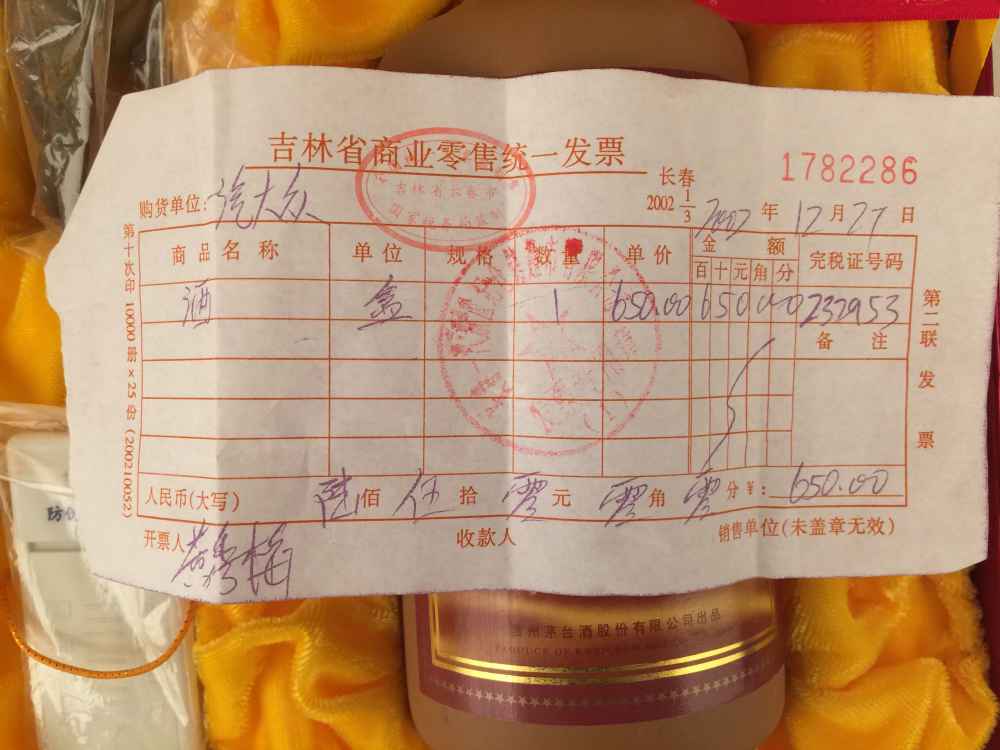 吉林省商业零售统一发票
吉林省长春市
国家税务局监制
1782286
长春
2002 1/3
购货单位:汽大众
2002年12月27日
商品名称 单位 规格 数量 单价 金额 完税证号码
百十元角分
酒 盒 1 650.00 65000 232953
备注
人民币(大写) 陆佰伍拾零元零角零分 ¥:650.00
开票人
收款人
销售单位(未盖章无效)
第十次印 10000册×25份(200210052)
第二联 发票
防伪
贵州茅台酒股份有限公司出品